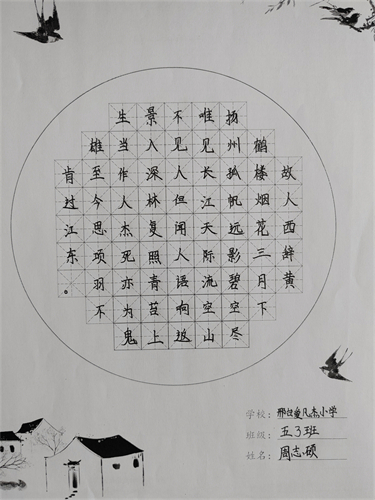 故人西辞黄
鹤楼烟花三月下
扬州孤帆远影碧空尽
唯见长江天际流空山
不见人但闻人语响返
景入深林复照青苔上
生当作人杰死亦为鬼
雄至今思项羽不
肯过江东。
学校：小学
班级：五3班
姓名：周志硕